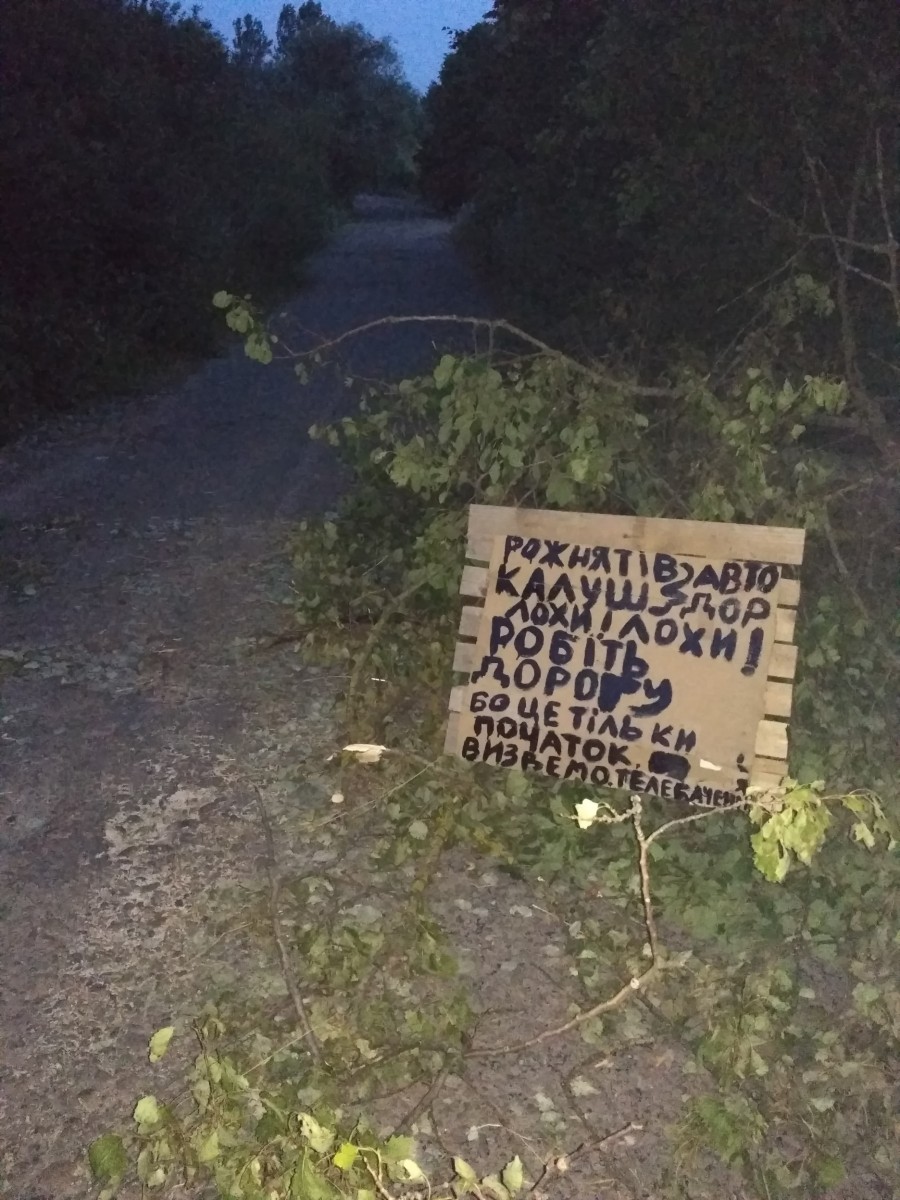 РОЖНЯТІВ АВТО
КАЛУШ ДОР
ЛОХИ І ЛОХИ!
РОБІТЬ
ДОРОГУ
БО ЦЕ ТІЛЬКИ
ПОЧАТОК.
ВИЗВЕМО ТЕЛЕБАЧЕН